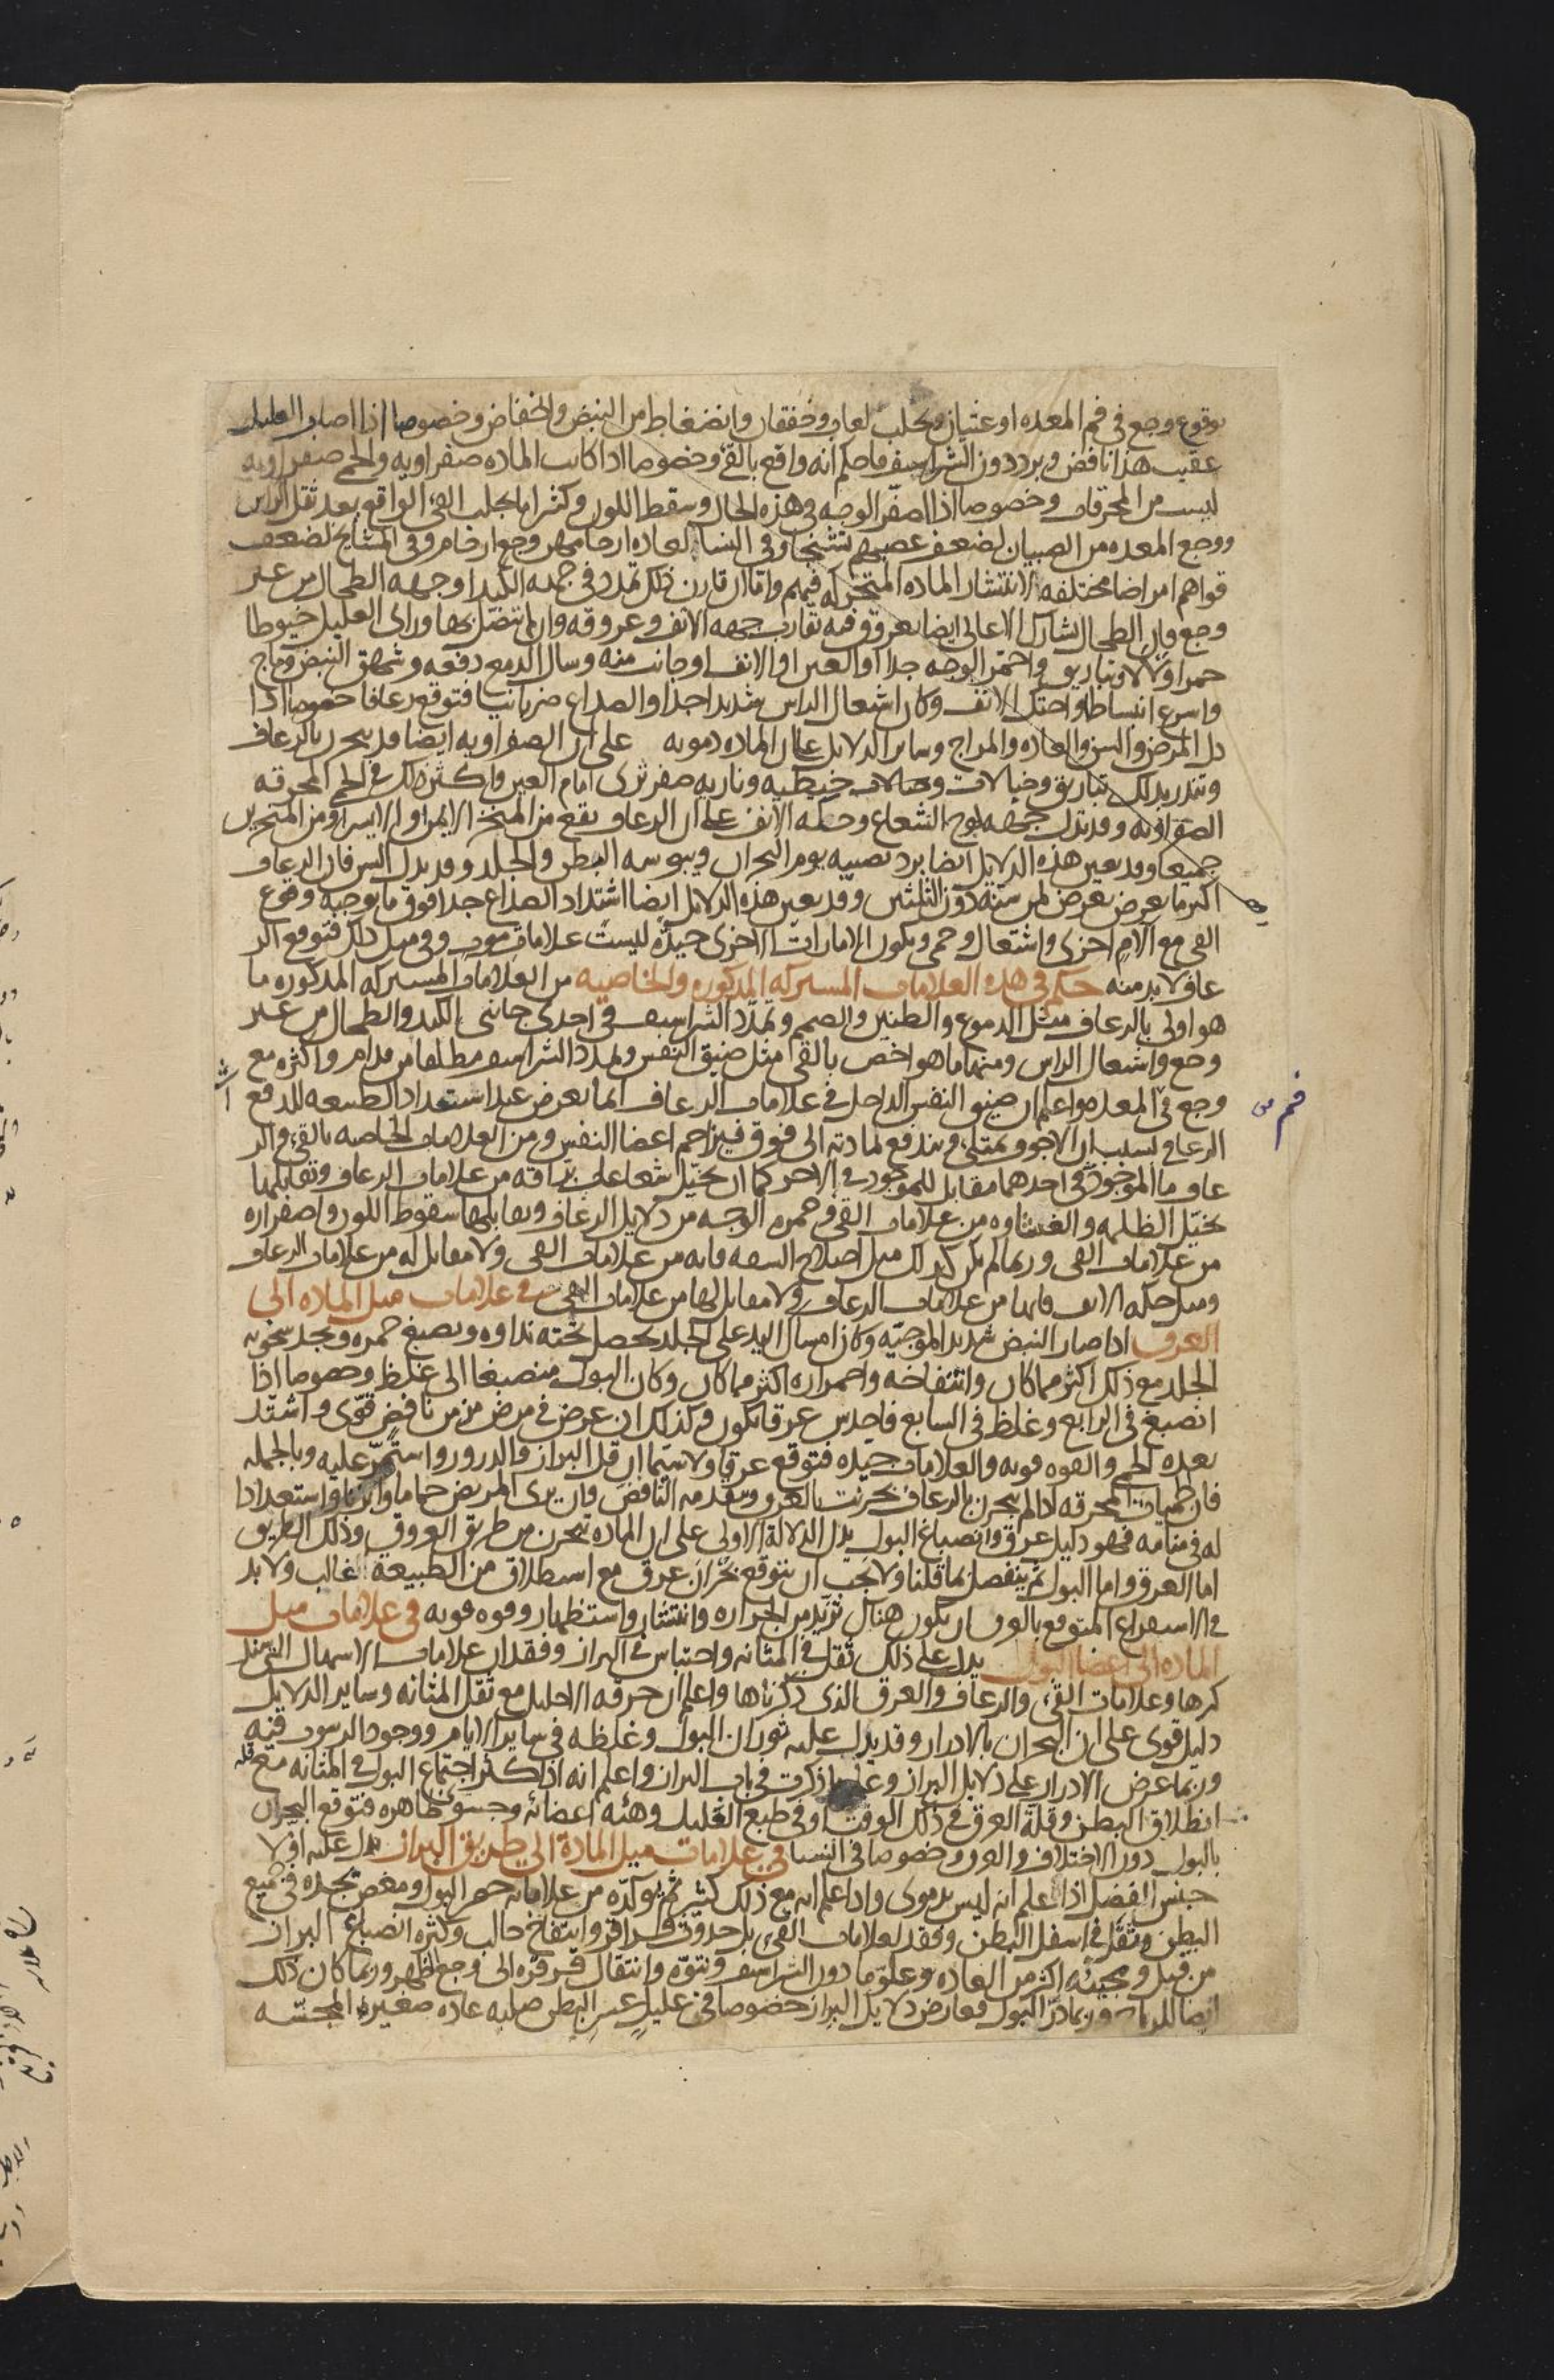 بوقوع وجع في فم المعده او غثيان وتحلب لعاب وخفقان وانضغاط من النبض وانخفاض وخصوصا اذا اصاب العليل
عقيب هذا نافض وبرد دون الشراسيف فاحكم انه واقع بالقى وخصوصا اذا كانت الماده صفراويه والحمى صفراويه
ليست من المحرقات وخصوصا اذا اصفر الوجه في هذه الحال وسقط اللون وكثيرا ما يجلب القى الواقع بعد ثقل الراس
ووجع المعده من الصبيان لضعف عصبهم تشنجا وفي النساء لعاده ارحامهن وجع ارحام وفي المشايخ لضعف
قواهم امراضا مختلفه لانتشار الماده المتحركه فيهم واما ان قارن ذلك تمدد في جهه الكبد او جهه الطحال من غير
وجع فان الطحال يشارك الاعالى ايضا بعروق فيه تقارب جهه الانف وعروقه وان لم تتصل بها وراى العليل خيوطا
حمرا ولالا وتباريق واحمر الوجه جدا او العين او الانف او جانب منه وسال الدمع دفعه وشهق النبض وماج
واسرع انبساطا واحتك الانف وكان اشعال الراس شديدا جدا والصداع ضربانيا فتوقع رعافا خصوصا اذا
دل المرض والسن والعاده والمزاج وساير الدلايل على ان الماده دمويه على ان الصفراويه ايضا قد يبحرن بالرعاف
وتنذر بذلك تباريق وخيالات وخيالات خيطيه وناريه صفر ترى امام العين واكثر ذلك في الحمى المحرقه
الصفراويه وقد تدل جهه لوح الشعاع وحكه الانف على ان الرعاف يقع من المنخر الايمن او الايسر او من المنخرين
جميعا وقد يعين هذه الدلايل ايضا برد يصيبه يوم البحران ويبوسه البطن والجلد وقد يدل السن فان الرعاف
اكثر ما يعرض يعرض لمن سنه دون الثلثين وقد يعين هذه الدلايل ايضا اشتداد الصداع جدا فوق ما يوجبه وقوع
القى مع الام اخرى واشتعال وحمى ويكون الامارات الاخرى جيده ليست علامات موت وفي مثل ذلك فتوقع الر
عاف لا بد منه حكم في هذه العلامات المشتركه المذكوره والخاصيه من العلامات المشتركه المذكوره ما
هو اولى بالرعاف مثل الدموع والطنين والصمم وتمدد الشراسيف في احدى جانبى الكبد والطحال من غير
وجع واشعال الراس ومنها ما هو اخص بالقى مثل ضيق النفس وتمدد الشراسيف مطلقا من قدام واكثره مع
وجع في المعده واعلم ان ضيق النفس الداخل في علامات الرعاف انما يعرض عند استعداد الطبيعه للدفع
فم
الرعافى لسبب ان الاجوف يمتلى ويندفع لمادته الى فوق فيزاحم اعضا النفس ومن العلامات الخاصه بالقى والر
عاف ما الموجود في احدهما مقابل للموجود في الاخر كما ان تخيل شعاعات براقه من علامات الرعاف وتقابلها
تخيل الظلمه والغشاوه من علامات القى وحمره الوجه من دلايل الرعاف ويقابلها سقوط اللون واصفراره
من علامات القى وربما لم يكن كذلك مثل اختلاج الشفه فانه من علامات القى ولا مقابل له من علامات الرعاف
ومثل حكه الانف فانها من علامات الرعاف ولا مقابل لها من علامات القى في علامات ميل الماده الى
العروق اذا صار النبض شديد الموجيه وكان امساك اليد على الجلد يحصل تحته نداوه ويصبغ حمره ويجد سخونه
الجلد مع ذلك اكثر مما كان وانتفاخه واحمراره اكثر مما كان وكان البول منصبغا الى غلظ وخصوصا اذا
انصبغ في الرابع وغلظ في السابع فاحدس عرقا يكون وكذلك ان عرض في مرض مزمن نافض قوى واشتد
بعده الحمى والقوه قويه والعلامات جيده فتوقع عرقا ولا سيما ان قل البراز والدرور واستمر عليه وبالجمله
فان الحميات المحرقه اذا لم يبحرن بالرعاف بحرنت بالعرق وتقدمه النافض وان يرى المريض حماما وابزنا واستعدادا
له في منامه فهو دليل عرق وانصباغ البول يدل الدلالة الاولى على ان الماده تبحرن من طريق العروق وذلك الطريق
اما العرق واما البول ثم ينفصل بما قلنا ولا يجب ان يتوقع بحران عرق مع استطلاق من الطبيعة الغالب ولا بد
في الاستفراغ المتوقع بالعرق ان يكون هناك تزيد من الحراره وانتشار واستظهار وقوه قويه في علامات ميل
الماده الى اعضا البول يدل على ذلك ثقل في المثانه واحتباس في البراز وفقدان علامات الاسهال التى نذ
كرها وعلامات القى والرعاف والعرق الذى ذكرناها واعلم ان حرقه الاحليل مع ثقل المثانه وساير الدلايل
دليل قوى على ان البحران بالادرار وقد يدل عليه ثوران البول وغلظه في ساير الايام ووجود الرسوب فيه
وربما عرض الادرار على دلايل البراز وعلى ما ذكرت في باب البراز واعلم انه اذا كثر اجتماع البول في المثانه مع قله
انطلاق البطن وقلة العرق في ذلك الوقت او في طبع العليل وهيئه اعضائه وجسوء ظاهره فتوقع البحران
بالبول دون الاختلاف والعرق وخصوصا في الشتا في علامات ميل المادة الى طريق البراز يدل عليه اولا
جنس الفضل اذا علم انه ليس بدموى واذا علم انه مع ذلك كثير ثم يوكده من علاماته حصر البول ومغص تجده في جميع
البطن وثقل في اسفل البطن وفقد لعلامات القى بل حدوث قراقر وانتفاخ حالب وكثره انصباغ البراز
من قبل ومجيئه اكثر من العاده وعلو ما دون الشراسيف ونتوه وانتقال قرقره الى وجع الظهر وربما كان ذلك
ايضا للرياح وربما در البول فعارض دلايل البراز خصوصا في عليل عسر البطن صلبه عاده صغير المجسه